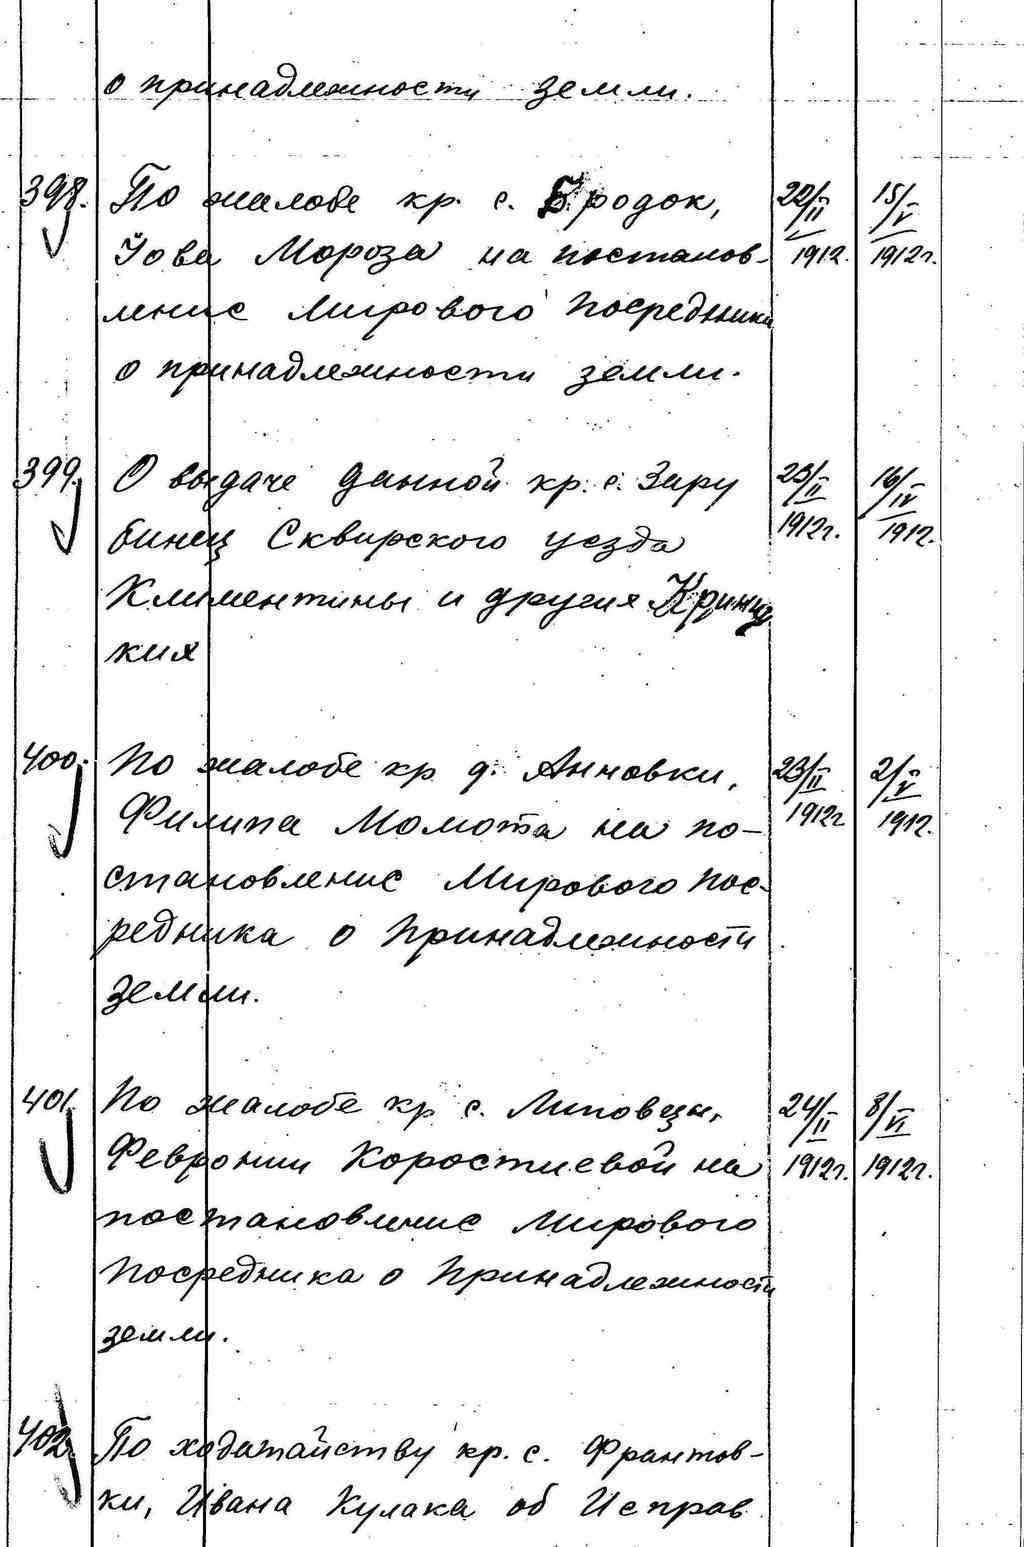 о принадлежности земли.
398. По жалобе кр. с. Бродок, 22/II 15/V
Иова Мороза на постанов- 1912. 1912г.
ление Мирового Посредника
о принадлежности земли.
399. О выдаче данной кр. с. Зару 23/II 16/IV
бинец Сквирского уезда 1912г. 1912.
Климентины и других Криниц
ких
400. По жалобе кр д. Анновки, 23/II 2/V
Филипа Момота на по- 1912г 1912.
становление Мирового Пос-
редника о Принадлежности
земли.
401. По жалобе кр с. Липовец, 24/II 8/VI
Февронии Коростиевой на 1912г. 1912г.
постановление Мирового
Посредника о Принадлежности
земли.
402. По ходатайству кр. с. Франтов-
ки, Ивана Кулака об Исправ